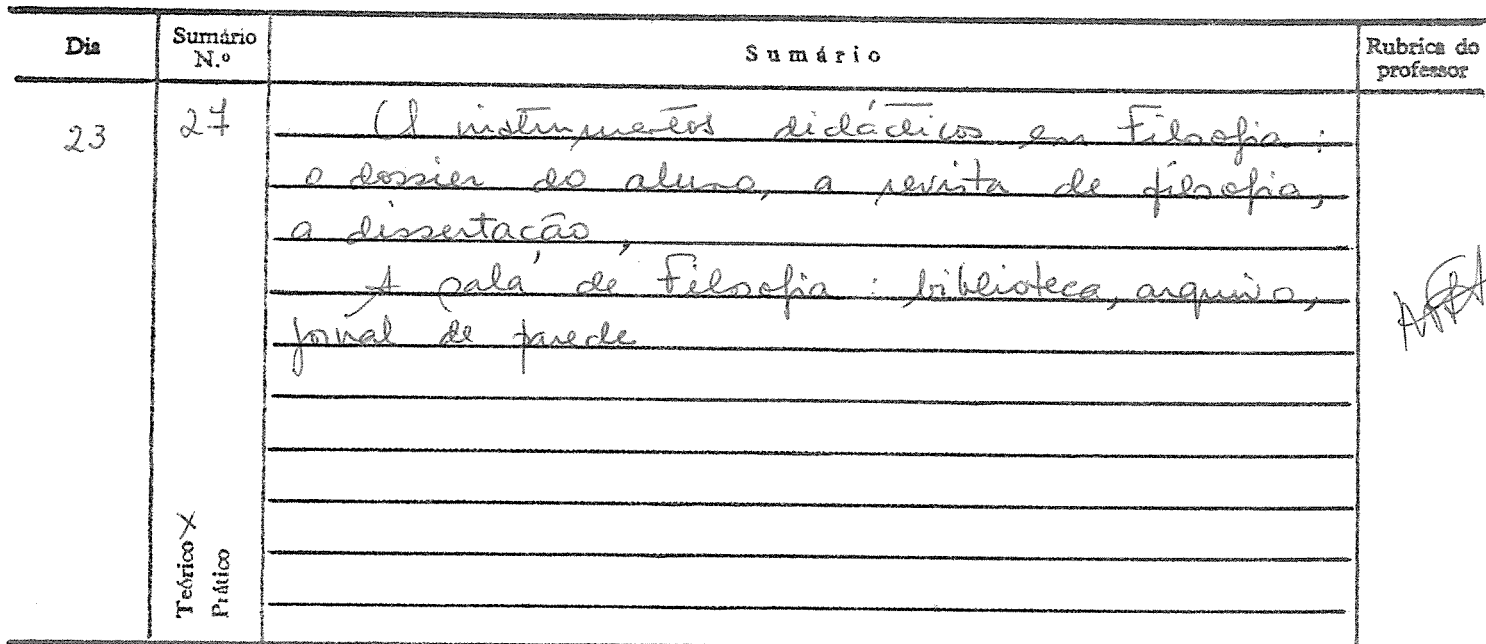 Dia
Sumário N.º
Sumário
Rubrica do professor
23
27
Os instrumentos didácticos em Filosofia :
o dossier do aluno, a revista de filosofia,
a dissertação,
A sala de Filosofia : biblioteca, arquivo,
jornal de parede
Teórico X
Prático